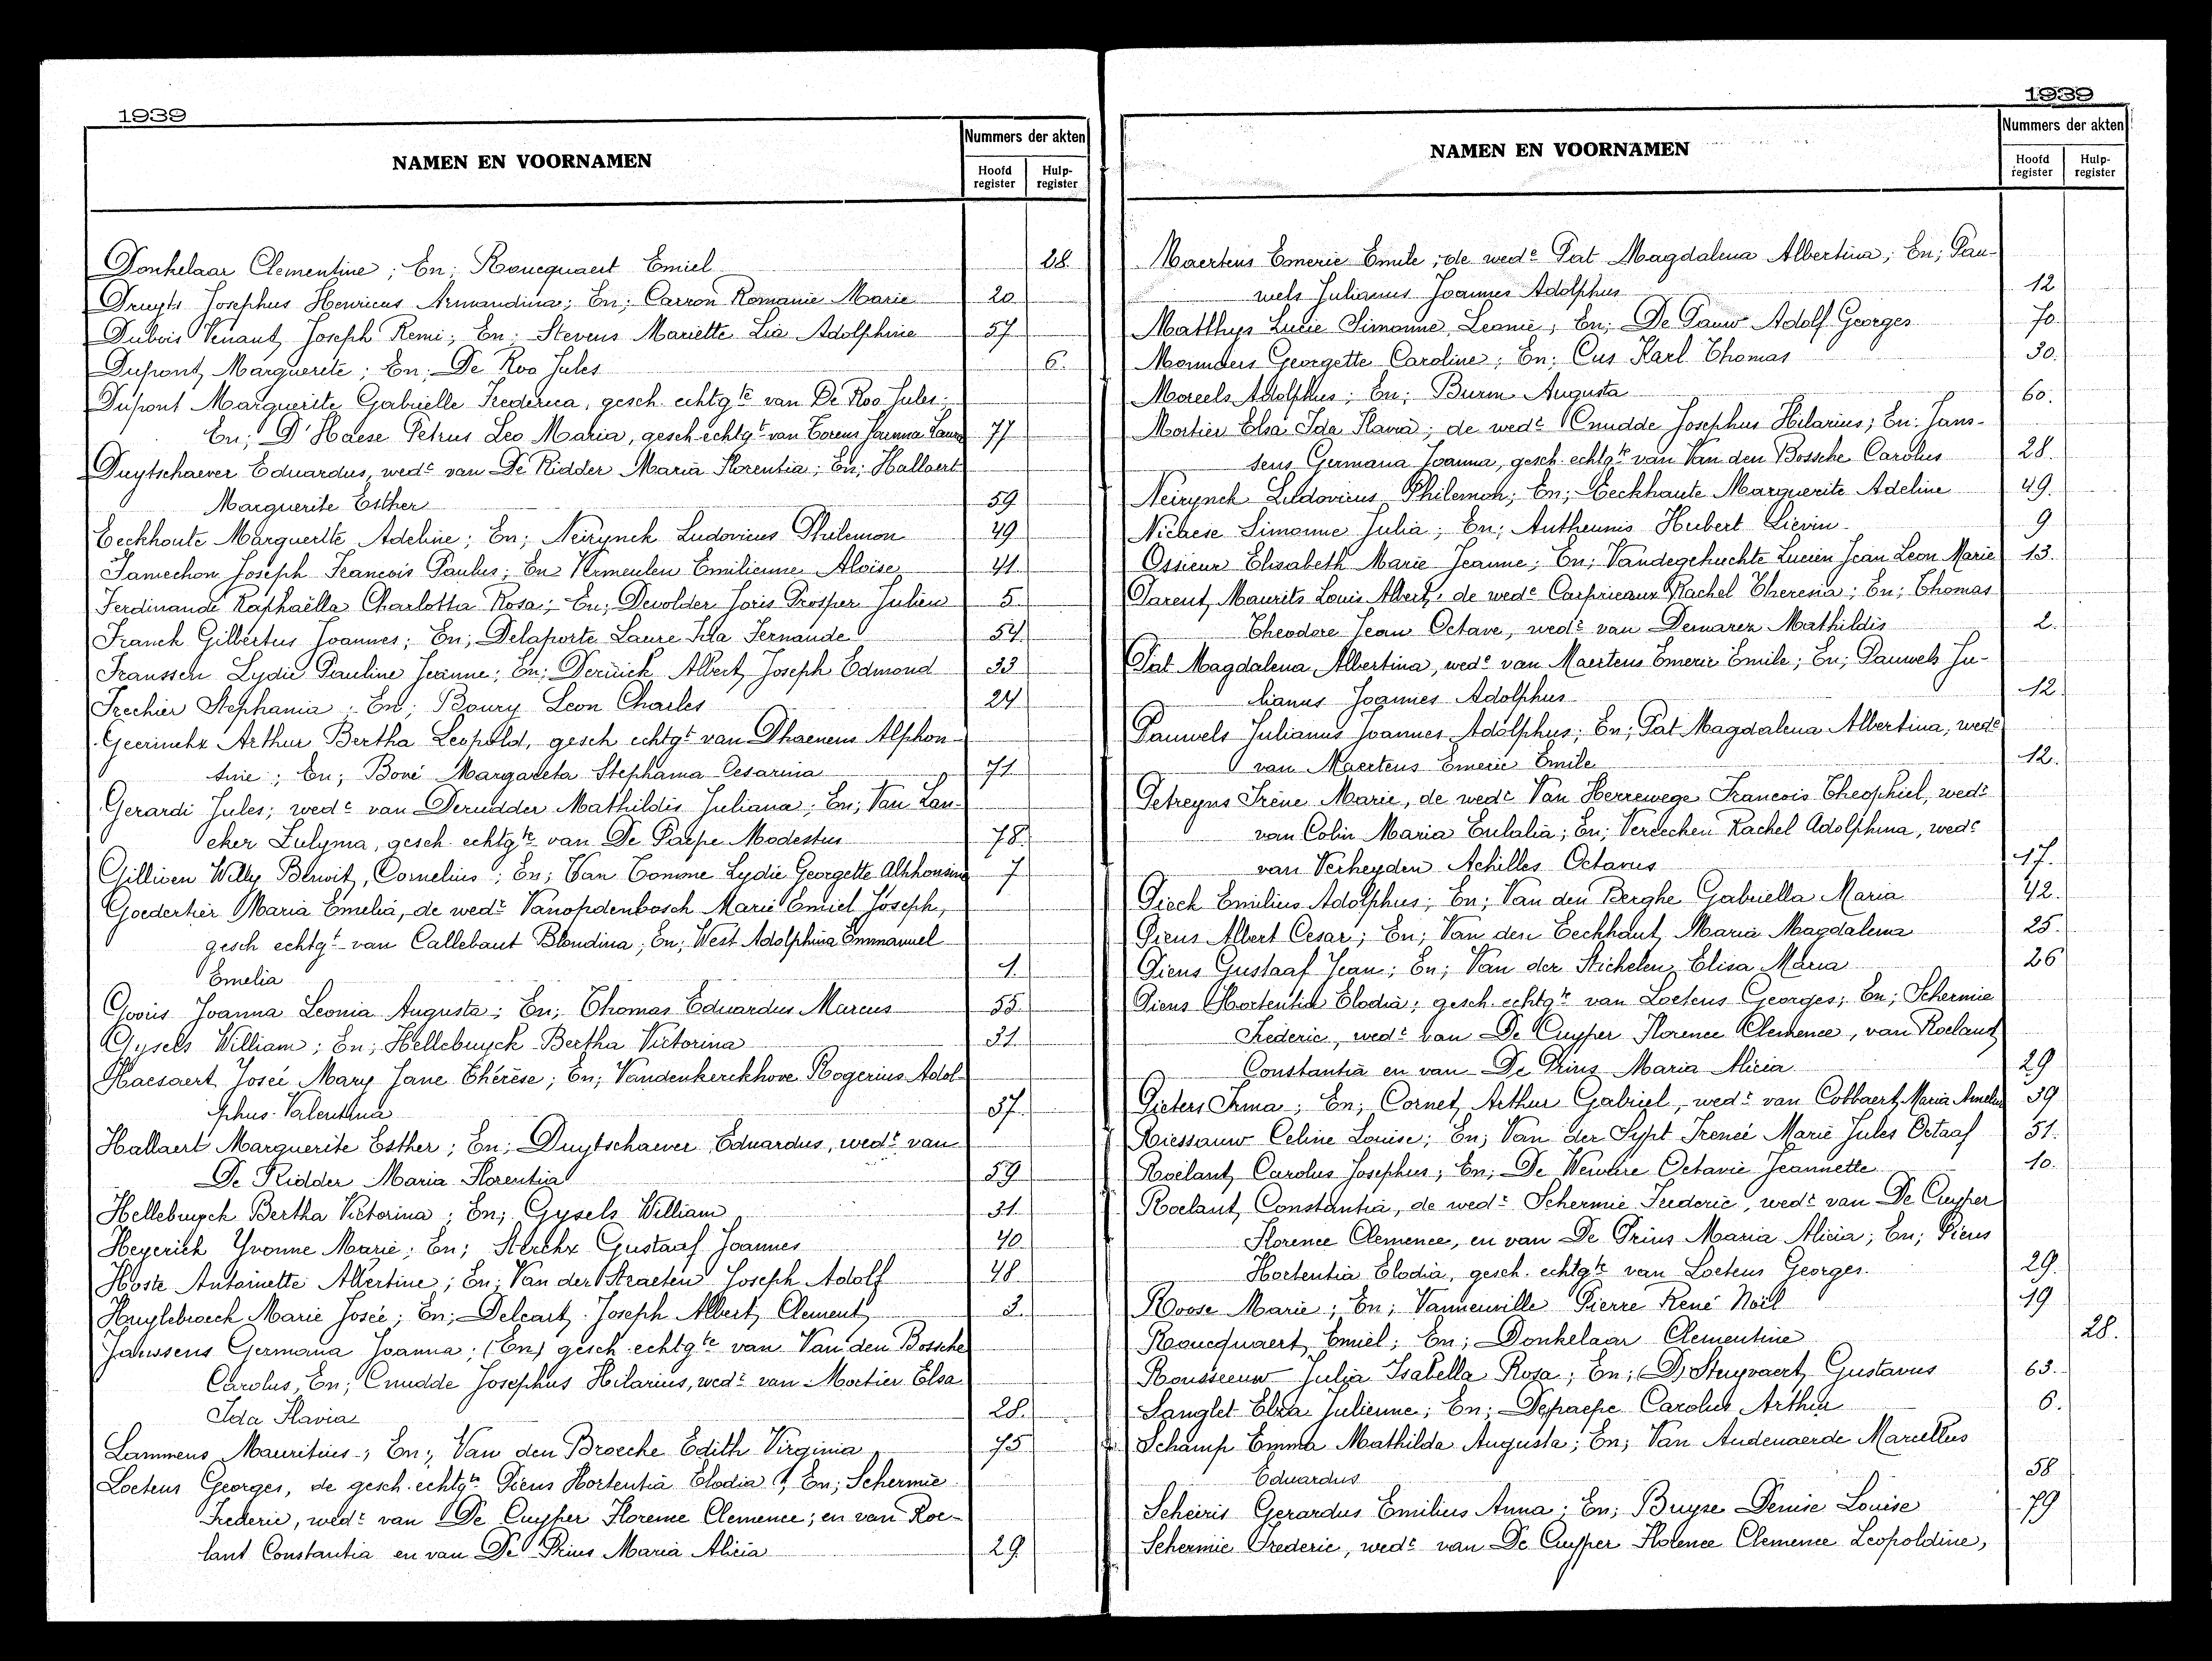 1939
NAMEN EN VOORNAMEN
Nummers der akten
Hoofd register
Hulp-register
Donkelaar Clementine; En; Roucquaert Emiel 28.
Druyts Josephus Henricus Armandina; En; Carron Romanie Marie 20
Dubois Venant Joseph Remi; En; Stevens Mariette Lia Adolphine 57
Dupont Marguerite; En; De Roo Jules 6.
Dupont Marguerite Gabrielle Frederica, gesch. echtgte van De Roo Jules;
En; D'Haese Petrus Leo Maria, gesch. echtgt van Torens Joanna Laura 77
Duytschaever Eduardus, wedr van De Ridder Maria Florentia; En; Hallaert
Marguerite Esther 59
Eeckhoute Marguerite Adeline; En; Neirynck Ludovicus Philemon 49
Famechon Joseph Francois Paulus; En; Vermeulen Emilienne Aloïse 41
Ferdinande Raphaëlla Charlotta Rosa; En; Dewolder Joris Prosper Julien 5
Franck Gilbertus Joannes; En; Delaporte Laure Ida Fernande 54
Franssen Lydie Pauline Jeanne; En; Deruck Albert Joseph Edmond 33
Frechier Stephania; En; Boury Leon Charles 24
Geerinckx Arthur Bertha Leopold, gesch echtgt van Dhaenens Alphon-
sine; En; Boné Margareta Stephania Cesarina 71
Gerardi Jules; wedr van Derudder Mathildis Juliana; En; Van Lan-
cker Zulyma, gesch. echtgte van De Paepe Modestus 78.
Gillioen Willy Benoit, Cornelius; En; Van Tomme Lydie Georgette Alphonsine 7
Goedertier Maria Emelia, de wedr Vanopdenbosch Marie Emiel Joseph,
gesch echtgt van Callebaut Blondina; En; West Adolphina Emmanuel
Emelia 1
Gooris Joanna Leonia Augusta; En; Thomas Eduardus Marcus 55
Gysels William; En; Hellebuyck Bertha Victorina 31
Haesaert Joseé Mary Jane Thérèse; En; Vandenkerckhove Rogerius Adol-
phus Valentina 37
Hallaert Marguerite Esther; En; Duytschaever Eduardus, wedr van
De Ridder Maria Florentia 59
Hellebuyck Bertha Victorina; En; Gysels William 31
Heyerick Yvonne Marie; En; Sterckx Gustaaf Joannes 40
Hoste Antoinette Albertine; En; Van der Straeten Joseph Adolf 48
Huylebroeck Marie Joseé; En; Delcart Joseph Albert Clement 3.
Janssens Germana Joanna; (En) gesch. echtgte van Van den Bossche
Carolus, En; Cnudde Josephus Hilarius, wedr van Mortier Elsa
Ida Flavia 28.
Lammens Mauritius; En; Van den Broecke Edith Virginia 75
Loeteus Georges, de gesch. echtgte Piens Hortentia Elodia; En; Schermie
Frederic, wedr van De Cuyper Florence Clemence; en van Roe-
lant Constantia en van De Prins Maria Alicia 29
1939
NAMEN EN VOORNAMEN
Nummers der akten
Hoofd register
Hulp-register
Maertens Emerie Emile; de wede Pat Magdalena Albertina; En; Pau-
wels Julianus Joannes Adolphus 12
Matthys Lucie Simonne Leonie; En; De Pauw Adolf Georges 70
Monnaers Georgette Caroline; En; Cus Karl Thomas 30.
Moreels Adolphus; En; Burm Augusta 60.
Mortier Elsa Ida Flavia; de wedr Cnudde Josephus Hilarius; En: Jans-
sens Germana Joanna, gesch. echtgte van Van den Bossche Carolus 28.
Neirynck Ludovicus Philemon; En; Eeckhaute Marguerite Adeline 49.
Nichaese Simonne Julia; En; Antheunis Hubert Lievin 9
Ossieur Elisabeth Marie Jeanne; En; Vandegehuchte Lucien Jean Leon Marie 13.
Parent Maurits Louis Albert, de wede Carprieaux Rachel Theresia; En; Thomas
Theodore Jean Octave, wedr van Demarez Mathildis 2.
Pat Magdalena Albertina, wede van Maertens Emerie Emile; En; Pauwels Ju-
lianus Joannes Adolphus 12.
Pauwels Julianus Joannes Adolphus; En; Pat Magdalena Albertina, wede
van Maertens Emerie Emile 12.
Petreyns Irène Marie, de wedr Van Herrewege Francois Theophiel, wedr
van Colin Maria Eulalia; En; Vereecken Rachel Adolphina, wede
van Verheyden Achilles Octavus 17.
Pieck Emilius Adolphus; En; Van den Berghe Gabriella Maria 42.
Piens Albert Cesar; En; Van den Eeckhaut Maria Magdalena 25.
Piens Gustaaf Jean; En; Van der Stichelen Elisa Maria 26
Piens Hortentia Elodia; gesch. echtgte van Loeteus Georges; En; Schermie
Frederic, wedr van De Cuyper Florence Clemence, van Roelant
Constantia en van De Prins Maria Alicia 29
Pieters Irma; En; Cornet Arthur Gabriel, wedr van Cobbaert Maria Amelia 39
Riessauw Celine Louise; En; Van der Sypt Ireneé Marie Jules Octaaf 51.
Roelant Carolus Josephus; En; De Wewere Octavie Jeannette 10.
Roelant Constantia, de wedr Schermie Frederic, wedr van De Cuyper
Florence Clemence, en van De Prins Maria Alicia; En; Piens
Hortentia Elodia, gesch. echtgte van Loeteus Georges. 29.
Roose Marie; En; Vanneuville Pierre René Noël 19
Roucquaert Emiel; En; Donkelaar Clementine 28.
Rousseeuw Julia Isabella Rosa; En; (D) Stuyvaert Gustavus 63.
Sanglet Elza Julienne; En; Depraepe Carolus Arthur 6.
Schamp Emma Mathilda Augusta; En; Van Audenaerde Marcellus
Eduardus 58
Scheiris Gerardus Emilius Anna; En; Buyse Denise Louise 79
Schermie Frederic, wedr van De Cuyper Florence Clemence Leopoldine,